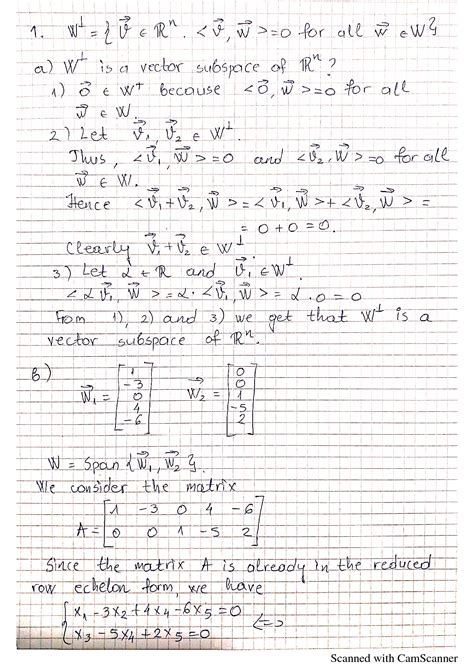 1. W⊥ = { v⃗ ∈ ℝⁿ. <v⃗, w⃗> = 0 for all w⃗ ∈ W}
a) W⊥ is a vector subspace of ℝⁿ?
1) 0⃗ ∈ W⊥ because <0⃗, w⃗> = 0 for all
w⃗ ∈ W.
2) Let v⃗₁, v⃗₂ ∈ W⊥.
Thus, <v⃗₁, w⃗> = 0 and <v⃗₂, w⃗> = 0 for all
w⃗ ∈ W.
Hence <v⃗₁ + v⃗₂, w⃗> = <v⃗₁, w⃗> + <v⃗₂, w⃗> =
= 0 + 0 = 0.
Clearly v⃗₁ + v⃗₂ ∈ W⊥.
3) Let α ∈ ℝ and v⃗₁ ∈ W⊥.
<α v⃗₁, w⃗> = α · <v⃗₁, w⃗> = α · 0 = 0
From 1), 2) and 3) we get that W⊥ is a
vector subspace of ℝⁿ.
b)
w⃗₁ = [1 -3 0 4 -6] w⃗₂ = [0 0 1 -5 2]
W = Span {w⃗₁, w⃗₂}.
We consider the matrix
A = [1 -3 0 4 -6
0 0 1 -5 2]
Since the matrix A is already in the reduced
row echelon form, we have
{ x₁ - 3x₂ + 4x₄ - 6x₅ = 0
x₃ - 5x₄ + 2x₅ = 0 <=>
Scanned with CamScanner